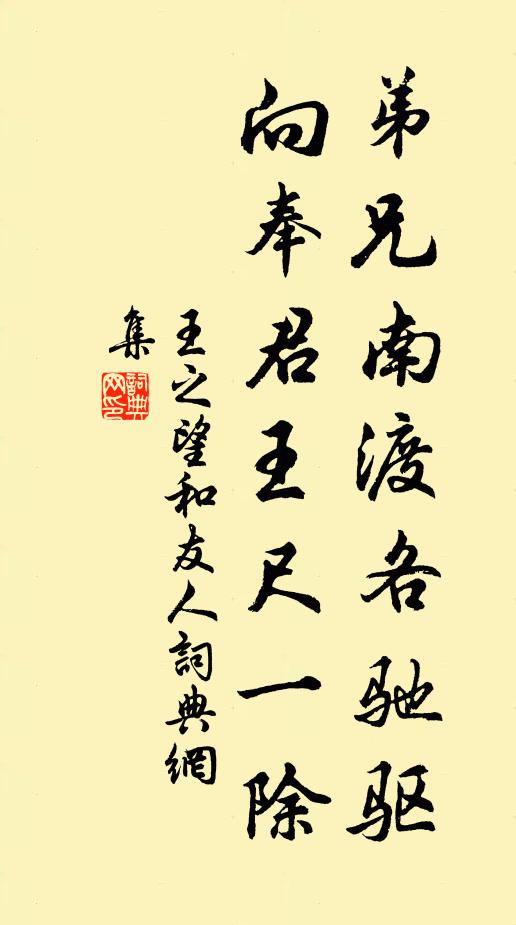 弟兄南渡各驰驱
向奉君王尺一除
王之望和友人詞典網
集
詞典网印